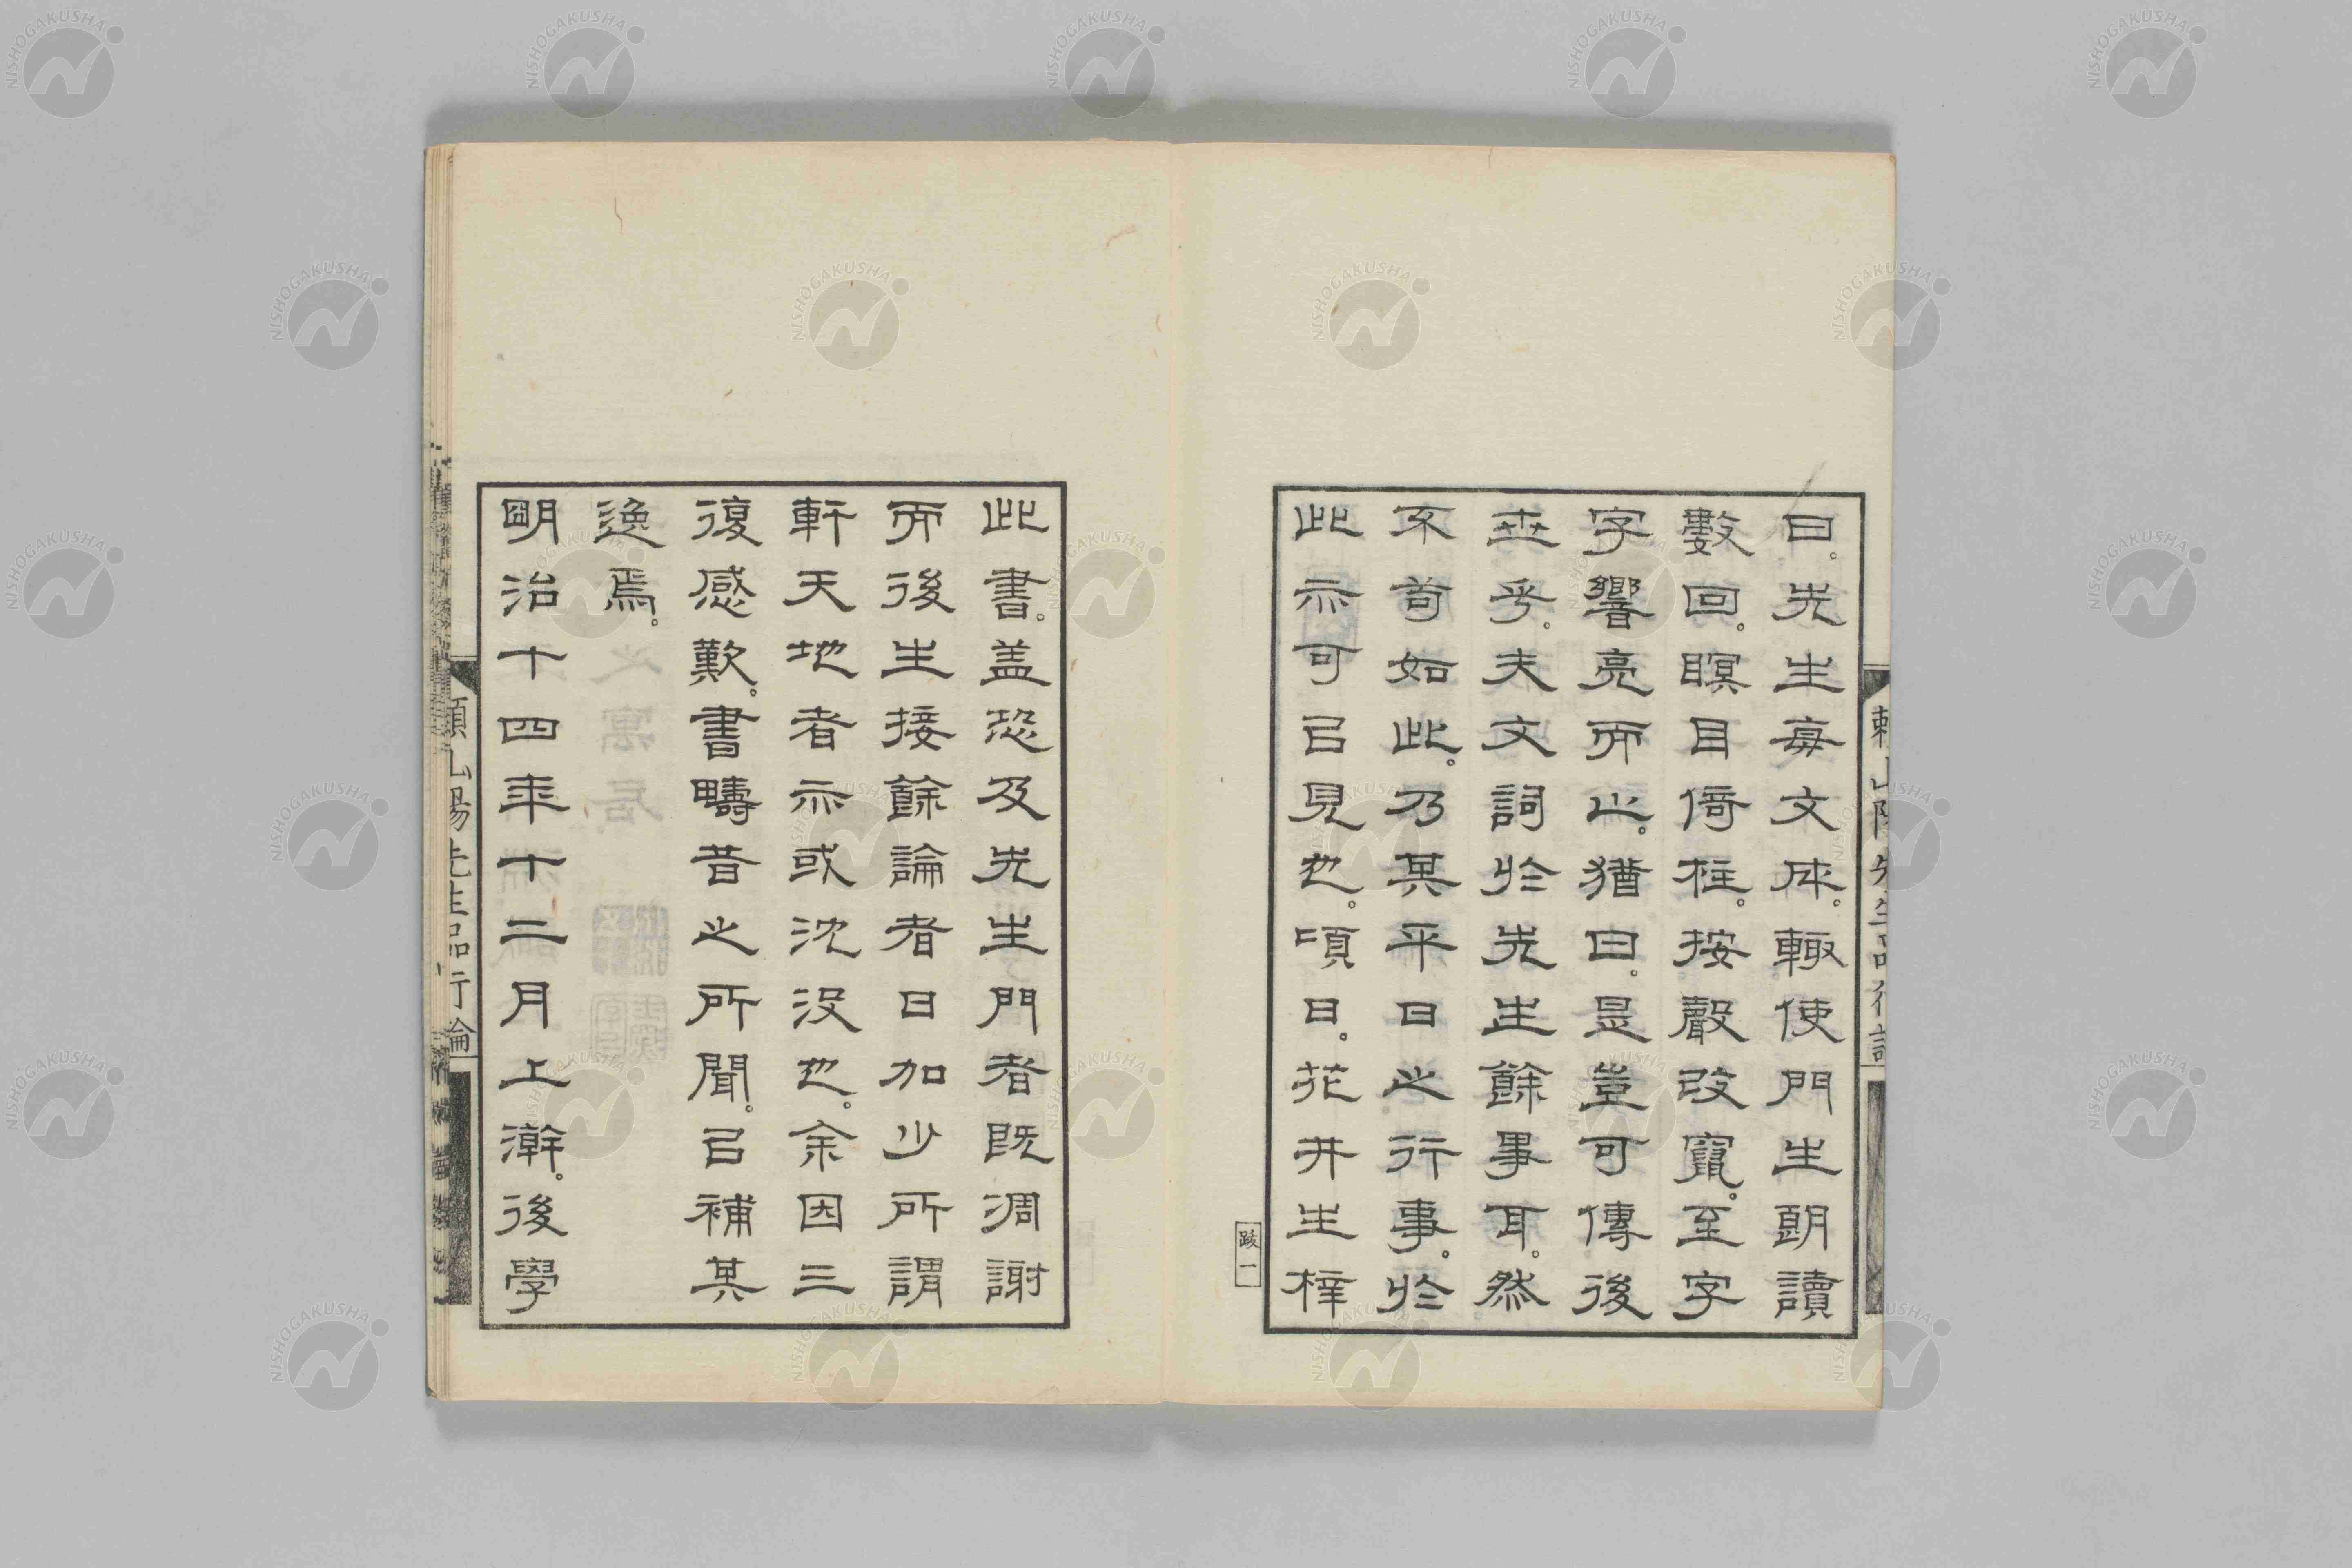 曰。先生每文成。輙使門生朗讀
數回。瞑目倚柱。按聲改竄。至字
字響亮而止。猶曰。是豈可傳後
世乎。夫文詞於先生餘事耳。然
不苟如此。乃其平日之行事。於
此亦可㠯見也。頃日。花井生梓
跋一
此書。盖恐及先生門者既凋謝
而後生接餘論者日加少所謂
軒天地者亦或沈没也。余因三
復感歎。書疇昔之所聞。㠯補其
逸焉。
明治十四年十二月上澣。後學
賴山陽先生品行論
NISHOGAKUSHA